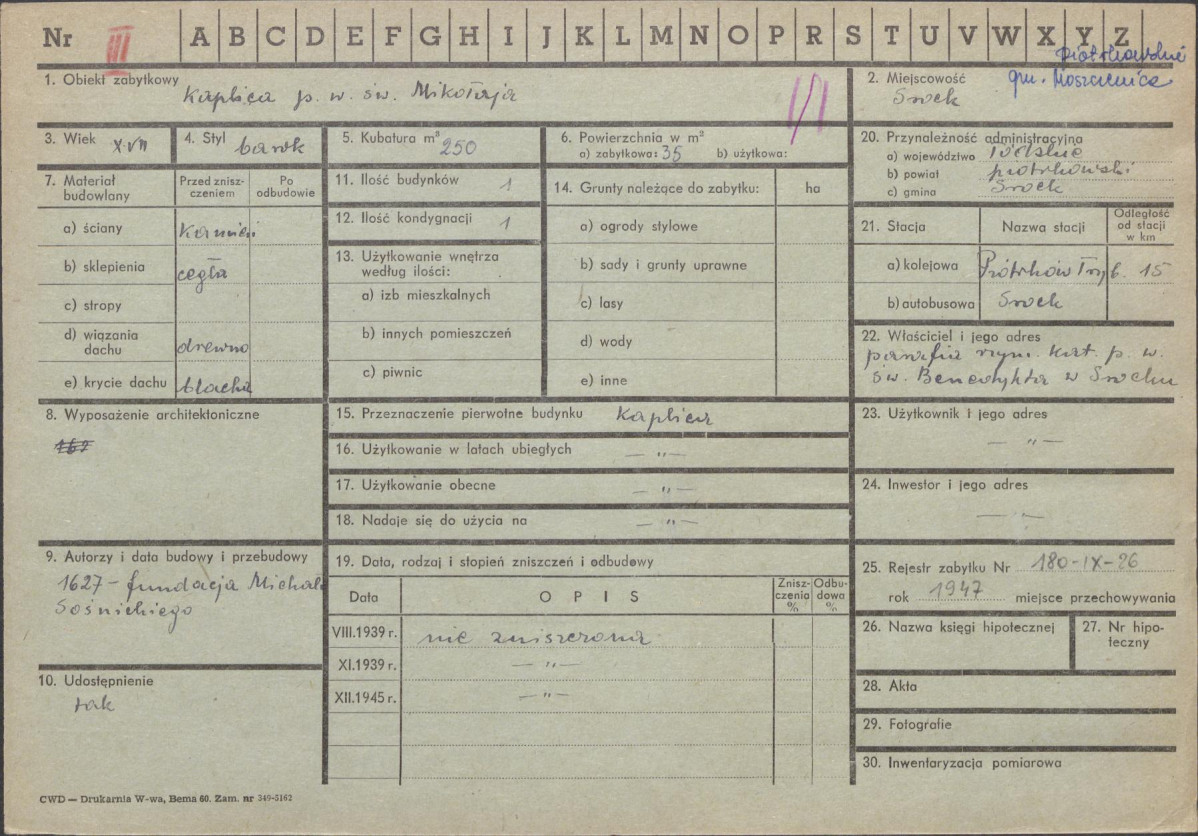 Nr III A B C D E F G H I J K L M N O P R S T U V W X Y Z
piotrkowskie
gm. Moszczenica
1. Obiekt zabytkowy
Kaplica p. w. św. Mikołaja
2. Miejscowość
Srock
3. Wiek XVII
4. Styl barok
5. Kubatura m³ 250
6. Powierzchnia w m²
a) zabytkowa: 35 b) użytkowa:
7. Materiał budowlany
Przed zniszczeniem
Po odbudowie
a) ściany kamień
b) sklepienia cegła
c) stropy
d) wiązania dachu drewno
e) krycie dachu blacha
8. Wyposażenie architektoniczne
9. Autorzy i data budowy i przebudowy
1627 - fundacja Michała
Sośnickiego
10. Udostępnienie
tak
11. Ilość budynków 1
12. Ilość kondygnacji 1
13. Użytkowanie wnętrza
według ilości:
a) izb mieszkalnych
b) innych pomieszczeń
c) piwnic
14. Grunty należące do zabytku: ha
a) ogrody stylowe
b) sady i grunty uprawne
c) lasy
d) wody
e) inne
15. Przeznaczenie pierwotne budynku Kaplica
16. Użytkowanie w latach ubiegłych — " —
17. Użytkowanie obecne — " —
18. Nadaje się do użycia na — " —
19. Data, rodzaj i stopień zniszczeń i odbudowy
Data OPIS Zniszczenia % Odbudowa %
VIII.1939 r. nie zniszczona
XI.1939 r. — " —
XII.1945 r. — " —
20. Przynależność administracyjna
a) województwo łódzkie
b) powiat piotrkowski
c) gmina Srock
21. Stacja Nazwa stacji Odległość od stacji w km
a) kolejowa Piotrków Tryb. 15
b) autobusowa Srock
22. Właściciel i jego adres
parafia rzym. kat. p. w.
św. Benedykta w Srocku
23. Użytkownik i jego adres
— " —
24. Inwestor i jego adres
— " —
25. Rejestr zabytku Nr 180-IX-26
rok 1947 miejsce przechowywania
26. Nazwa księgi hipotecznej
27. Nr hipoteczny
28. Akta
29. Fotografie
30. Inwentaryzacja pomiarowa
CWD — Drukarnia W-wa, Bema 60. Zam. nr 349-5162